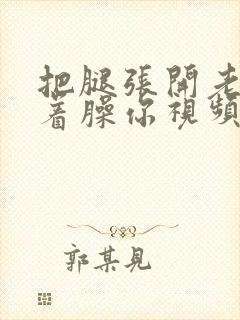 把腿張開老
着臊你視頻
郭某見